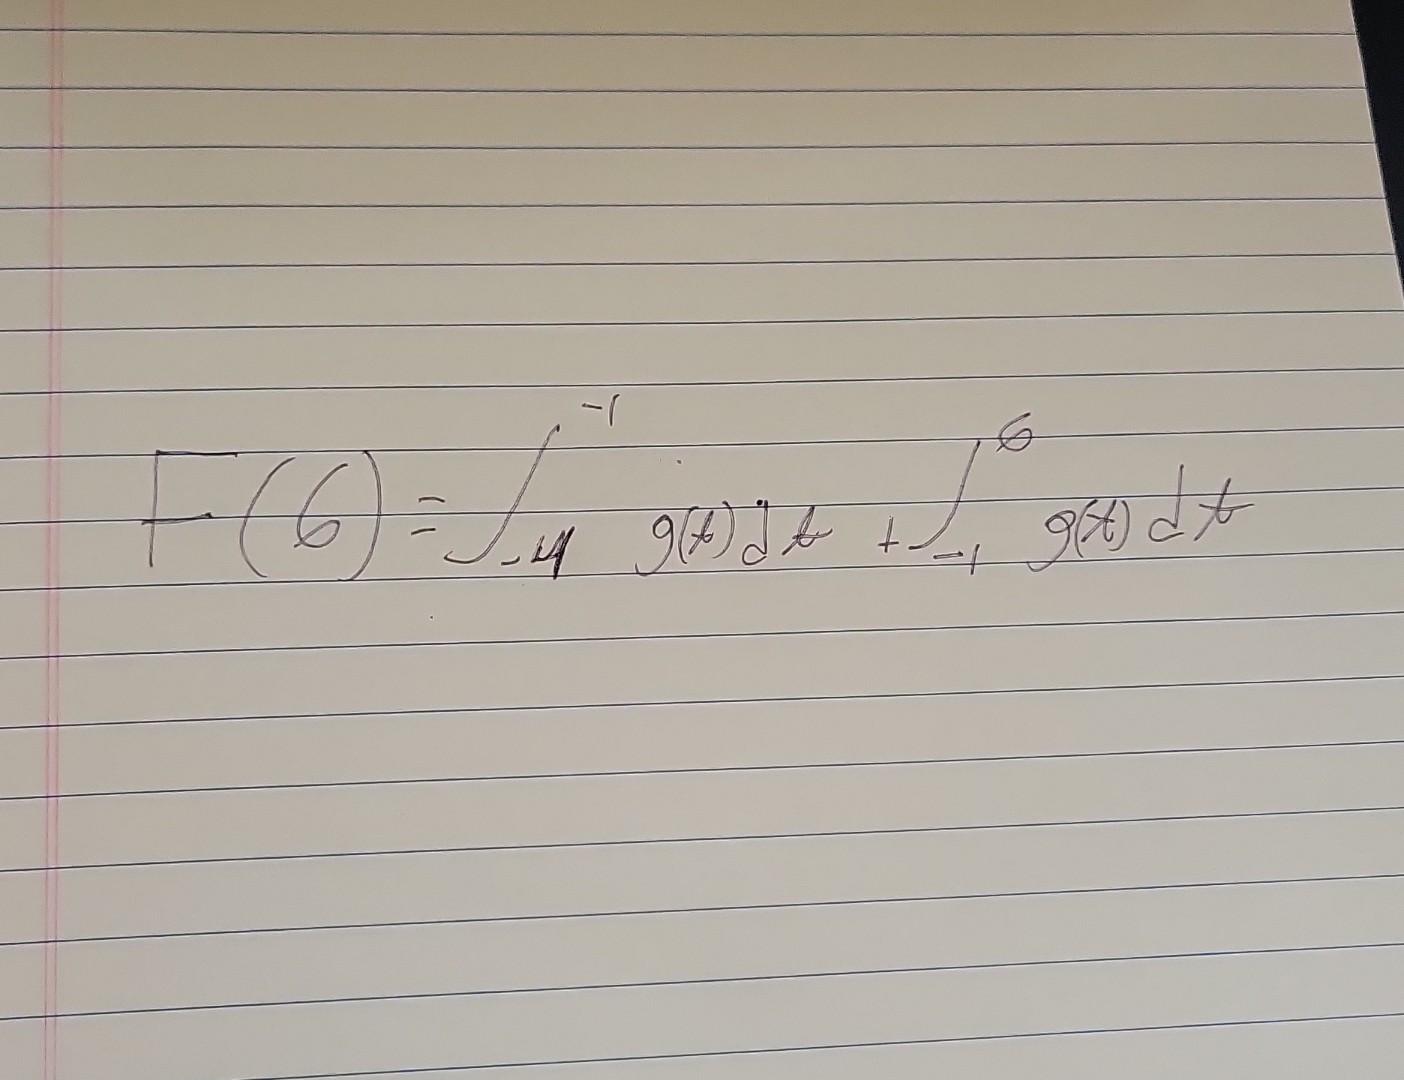 F(6) = ∫_{-4}^{-1} g(t) dt + ∫_{-1}^{6} g(t) dt